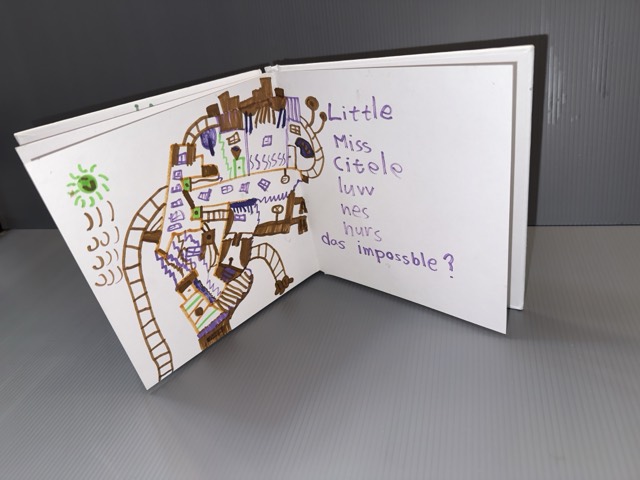 Little
Miss
Citele
luvv
nes
hurs
das impossble?